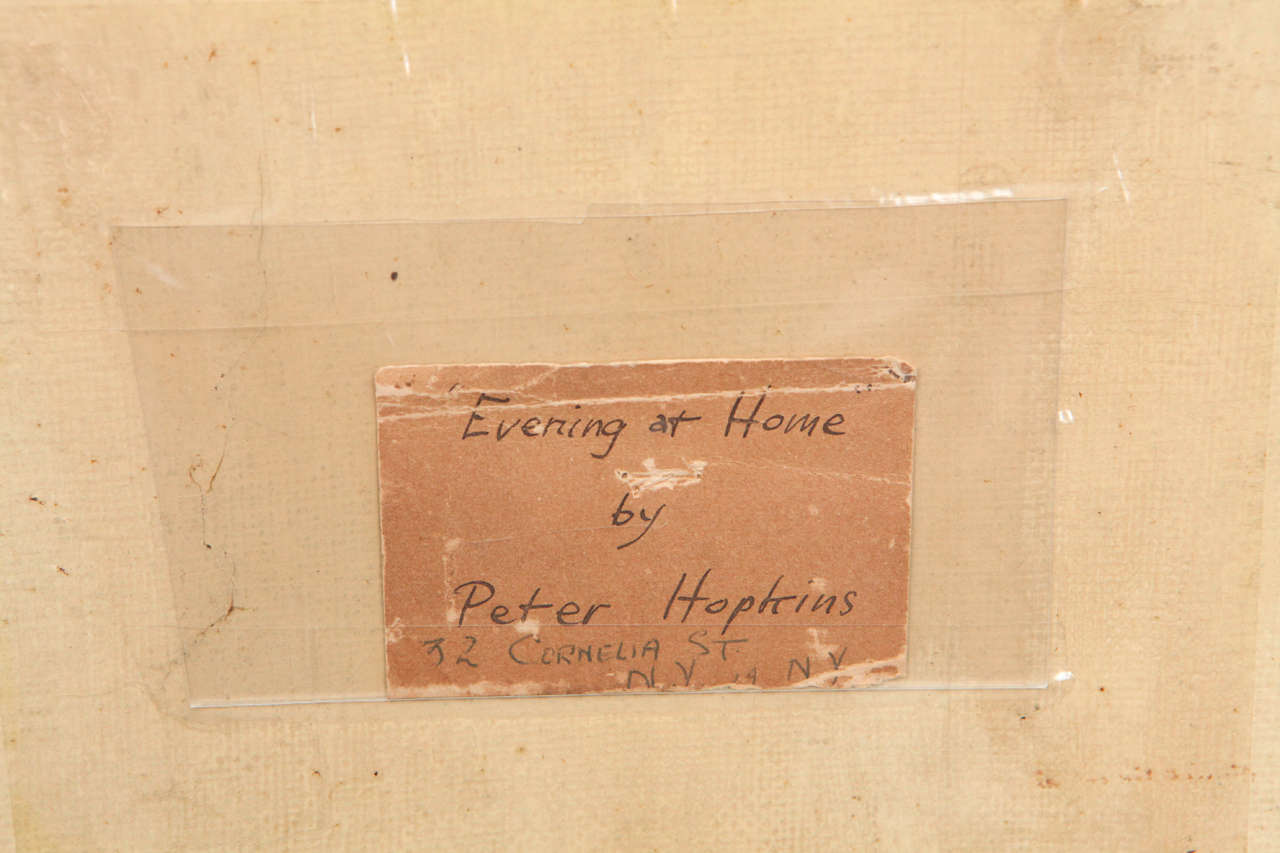 "Evening at Home"
by
Peter Hopkins
32 CORNELIA ST.
N.Y. 14 N.Y.